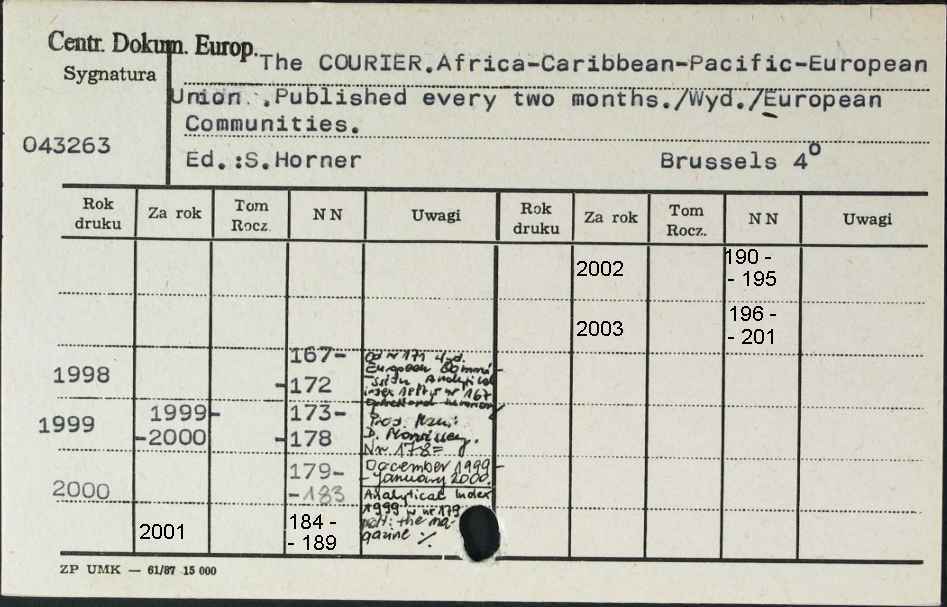 Centr. Dokum. Europ.
Sygnatura
043263
The COURIER.Africa-Caribbean-Pacific-European
Union .Published every two months./Wyd./European
Communities.
Ed.:S.Horner Brussels 4º
Rok druku Za rok Tom Rocz. NN Uwagi Rok druku Za rok Tom Rocz. NN Uwagi
2002 190 -
- 195
2003 196 -
- 201
1998 167-
-172
od nr 171 wyd.
European
Analytical
index nr 167
1999 1999- 173-
-2000 -178
D.
Nr 178=
2000 179-
-183
December 1999
- January 2000.
Analytical Index
1999 w nr 179
2001 184 -
- 189
podt: the ma-
gazine %
ZP UMK — 61/87 15 000